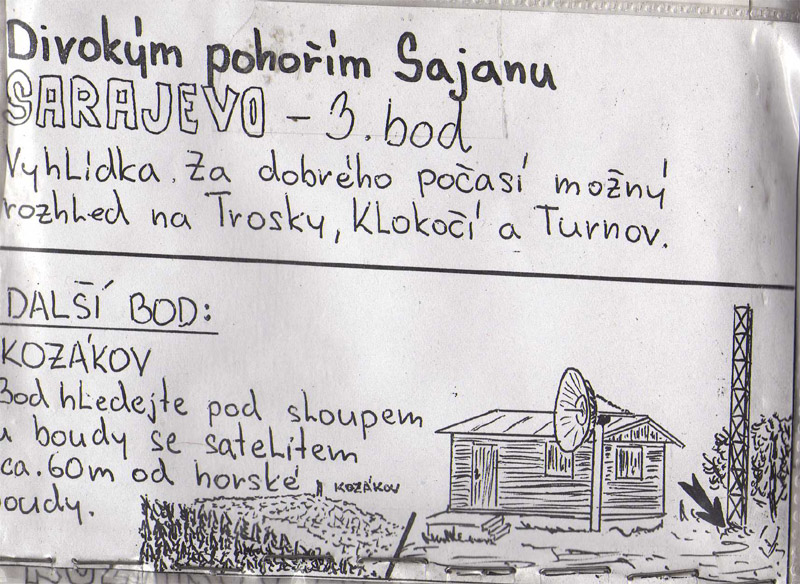 Divokým pohořím Sajanu
SARAJEVO - 3. bod
Vyhlídka. Za dobrého počasí možný
rozhled na Trosky, Klokočí a Turnov.
DALŠÍ BOD:
KOZÁKOV
Bod hledejte pod sloupem
u boudy se satelitem
ca. 60m od horské
boudy.
KOZÁKOV